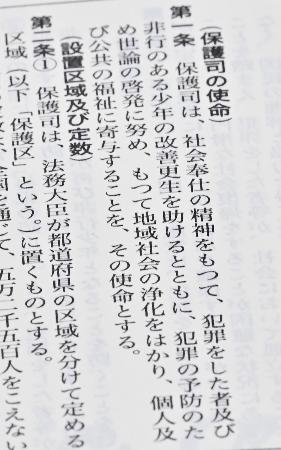 (保護司の使命)
第一条 保護司は、社会奉仕の精神をもつて、犯罪をした者及び
非行のある少年の改善更生を助けるとともに、犯罪の予防のた
め世論の啓発に努め、もつて地域社会の浄化をはかり、個人及
び公共の福祉に寄与することを、その使命とする。
(設置区域及び定数)
第二条① 保護司は、法務大臣が都道府県の区域を分けて定める
区域(以下「保護区」という。)に置くものとする。
全国を通じて、五万二千五百人をこえない